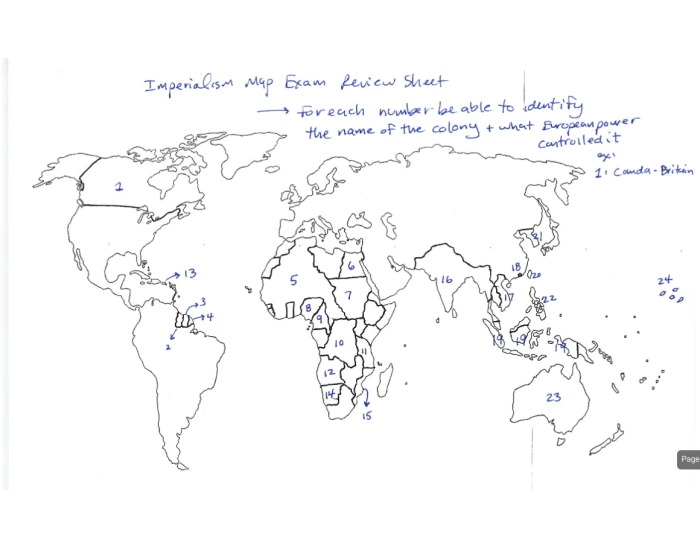 Imperialism Map Exam Review Sheet
→ for each number be able to identify
the name of the colony + what European power
controlled it
ex:
1: Canda - Britain
1
13
3
4
2
5
6
7
8
9
10
11
12
14
15
16
17
18
20
21
22
19
19
19
23
24
Page